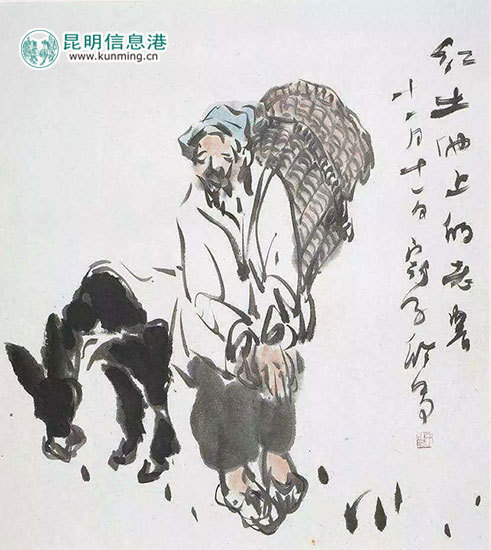 昆明信息港
www.kunming.cn
红土地上的老
十一月十一日